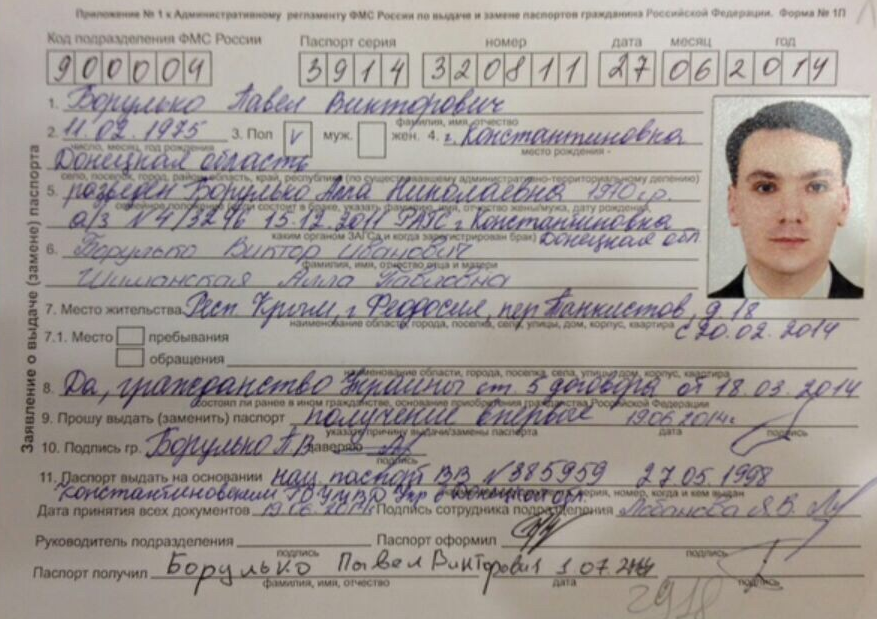 Приложение № 1 к Административному регламенту ФМС России по выдаче и замене паспортов гражданина Российской Федерации. Форма № 1П
Код подразделения ФМС России Паспорт серия номер дата месяц год
900004 3914 320811 27 06 2014
1. Борулько Павел Викторович
фамилия, имя, отчество
2. 11.02.1975 3. Пол V муж. жен. 4. г. Константиновка
число, месяц, год рождения место рождения -
Донецкая область
село, поселок, город, район, область, край, республика (по существовавшему административно-территориальному делению)
5. разведен Борулько Алла Николаевна 1970 г.р.
семейное положение (если состоит в браке, указать фамилию, имя, отчество жены/мужа, дату рождения,
а/з №4/3296 15.12.2011 РАГС г. Константиновка
каким органом ЗАГСа и когда зарегистрирован брак) Донецкая обл
6. Борулько Виктор Иванович
фамилия, имя, отчество отца и матери
Шиманская Алла Павловна
7. Место жительства Респ Крым, г Феодосия, пер Танкистов, д. 18
наименование области, города, поселка, села, улицы, дом, корпус, квартира с 20.02.2014
7.1. Место пребывания
обращения
наименование области, города, поселка, села, улицы, дом, корпус, квартира
8. Да, гражданство Украины ст 5 договора от 18.03.2014
состоял ли ранее в ином гражданстве, основание приобретения гражданства Российской Федерации
9. Прошу выдать (заменить) паспорт получение впервые 19.06.2014г
указать причину выдачи/замены паспорта дата подпись
10. Подпись гр. Борулько П В заверяю
подпись
11. Паспорт выдать на основании нац паспорт ВВ №385959 27.05.1998
серия, номер, когда и кем выдан
Константиновским ГО УМВД Укр в Донецкой обл.
Дата принятия всех документов 19.06.2014 Подпись сотрудника подразделения Лобанова Я.В.
Руководитель подразделения Паспорт оформил
подпись подпись
Паспорт получил Борулько Пывел Викторович 1.07.2014
фамилия, имя, отчество дата подпись
2918
Заявление о выдаче (замене) паспорта